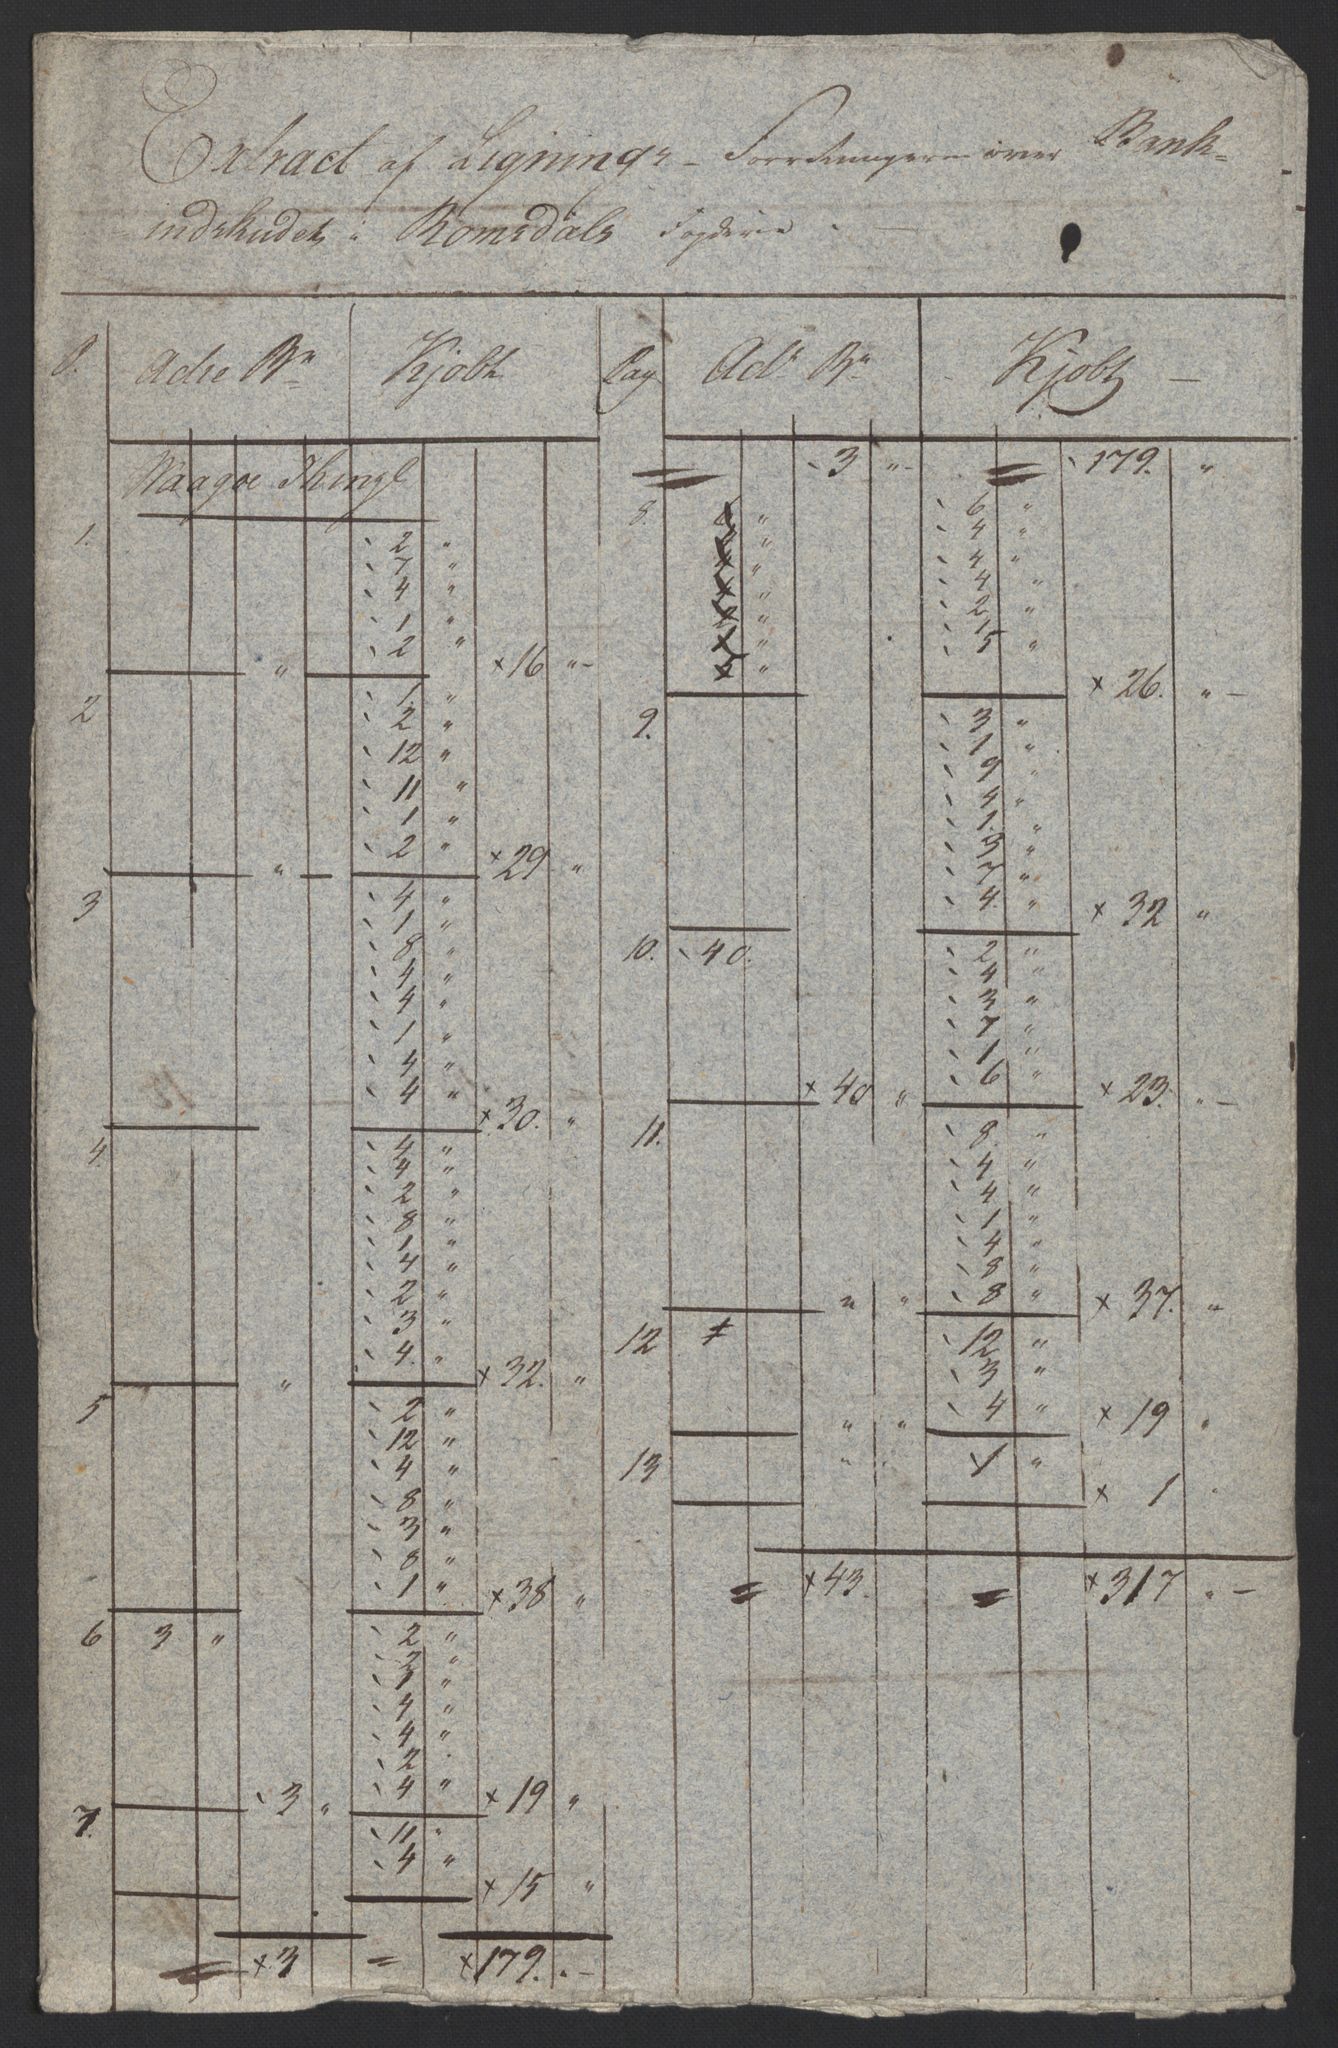 Extract af Lignings- Forretningerne over Bank-
indskudet i Romsdals Fogderie
P. Adle Bn Kjøbt
Waagøe Thingl
1.
2 "
7 "
4 "
1 "
2 "
" x 16 "-
2
1 "
2 "
12 "
11 "
1 "
2 "
" x 29 "
3
4 "
1 "
8 "
4 "
4 "
1 "
4 "
4 "
x 30. "
4.
4 "
4 "
2 "
8 "
1 "
4 "
2 "
3 "
4. "
" x 32. "
5
2 "
12 "
4 "
8 "
3 "
8 "
1 "
x 38 "
6 3 "
2 "
3 "
4 "
4 "
2 "
4 "
3 " x 19 "
7.
11 "
4 "
x 15 "
= x 3 = x 179. "-
Pag Ad. Bn Kjøbt
= 3 "- = 179. "
8.
6 "
4 "
4 "
4 "
2 "
15 "
x 26. "-
9.
3 "
1 "
9 "
4 "
1. "
3 "
7 "
4. "
x 32 "
10. 40.
2 "
4 "
3 "
7 "
1 "
6 "
x 40 " x 23. "-
11.
8. "
4 "
4 "
1 "
4 "
8 "
8 "
" " x 37. "
12
12 "
3 "
4 "
" " x 19 "
13 " " 1 "
x 1 "
= x 43. = x 317 "-